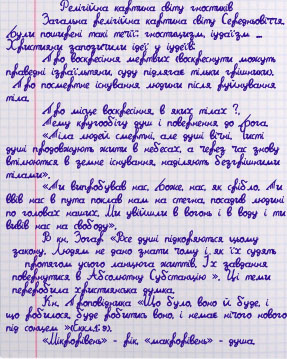 Релігійна картина світу гностиків
Загальна релігійна картина світу Середньовіччя.
Були поширені такі течії: гностицизм, іудаїзм ...
Християни запозичили ідеї у іудеїв:
Про воскресіння мертвих (воскреснути можуть
праведні ізраїльтяни, суду підлягає тільки грішники).
Про посмертне існування людини після руйнування
тіла.
Про місце воскресіння, в яких тілах?
Тему кругообігу душі і повернення до Бога.
«Тіла людей смертні, але душі вічні. Чисті
душі продовжують жити в небесах, а через час знову
втілюються в земне існування, наділяють безгрішними
тілами».
«Ти випробував нас, Боже, нас, як срібло. Ти
ввів нас в пута поклав нам на стегна, посадив людині
по головах наших. Ми увійшли в вогонь і в воду і ти
вивів нас на свободу».
В кн. Зогар «Все душі підкоряються цьому
закону. Людям не дано знати чому і як їх судять
протягом усього ланцюга життів. Їх завдання
повернутися в Абсолютну Субстанцію ». Ці теми
переробила християнська думка.
Кн. Проповідника «Що було, воно й буде, і
що робилося, буде робитись воно, і немає нічого нового
під сонцем »(Еккл.1:9).
«Мікрорівень» - рік, «макрорівень» - душа.